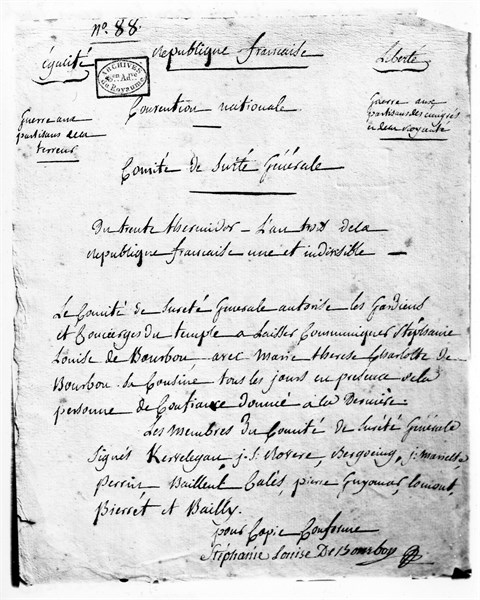 nº. 88.
égalité république francaise Liberté
ARCHIVES
Son Adve
du Royaume
Guerre aux
partisans de la
terreur
Convention nationale
Guerre aux
partisans des émigrés
et de la royauté
Comité de Surté Générale
Du trente thermidor - L'an trois de la
republique francaise une et indivisible -
Le Comité de Sureté Generale autorise les Gardiens
et Concierges du temple a Laisser Communiquer Stéphanie
Louise de Bourbon avec Marie therese Charlotte de
Bourbon sa Cousine tous les jours en presence de la
personne de Confiance donnée a la Derniere
Les Membres du Comité de Sureté Générale
Signés Kervelegan j. S. Rovere, Bergoeing, j. mariette
Perrin Bailleul Calès, pierre Guyomar, Lomont,
Pierret et Bailly.
pour Copie Conforme
Stéphanie Louise De Bourbon